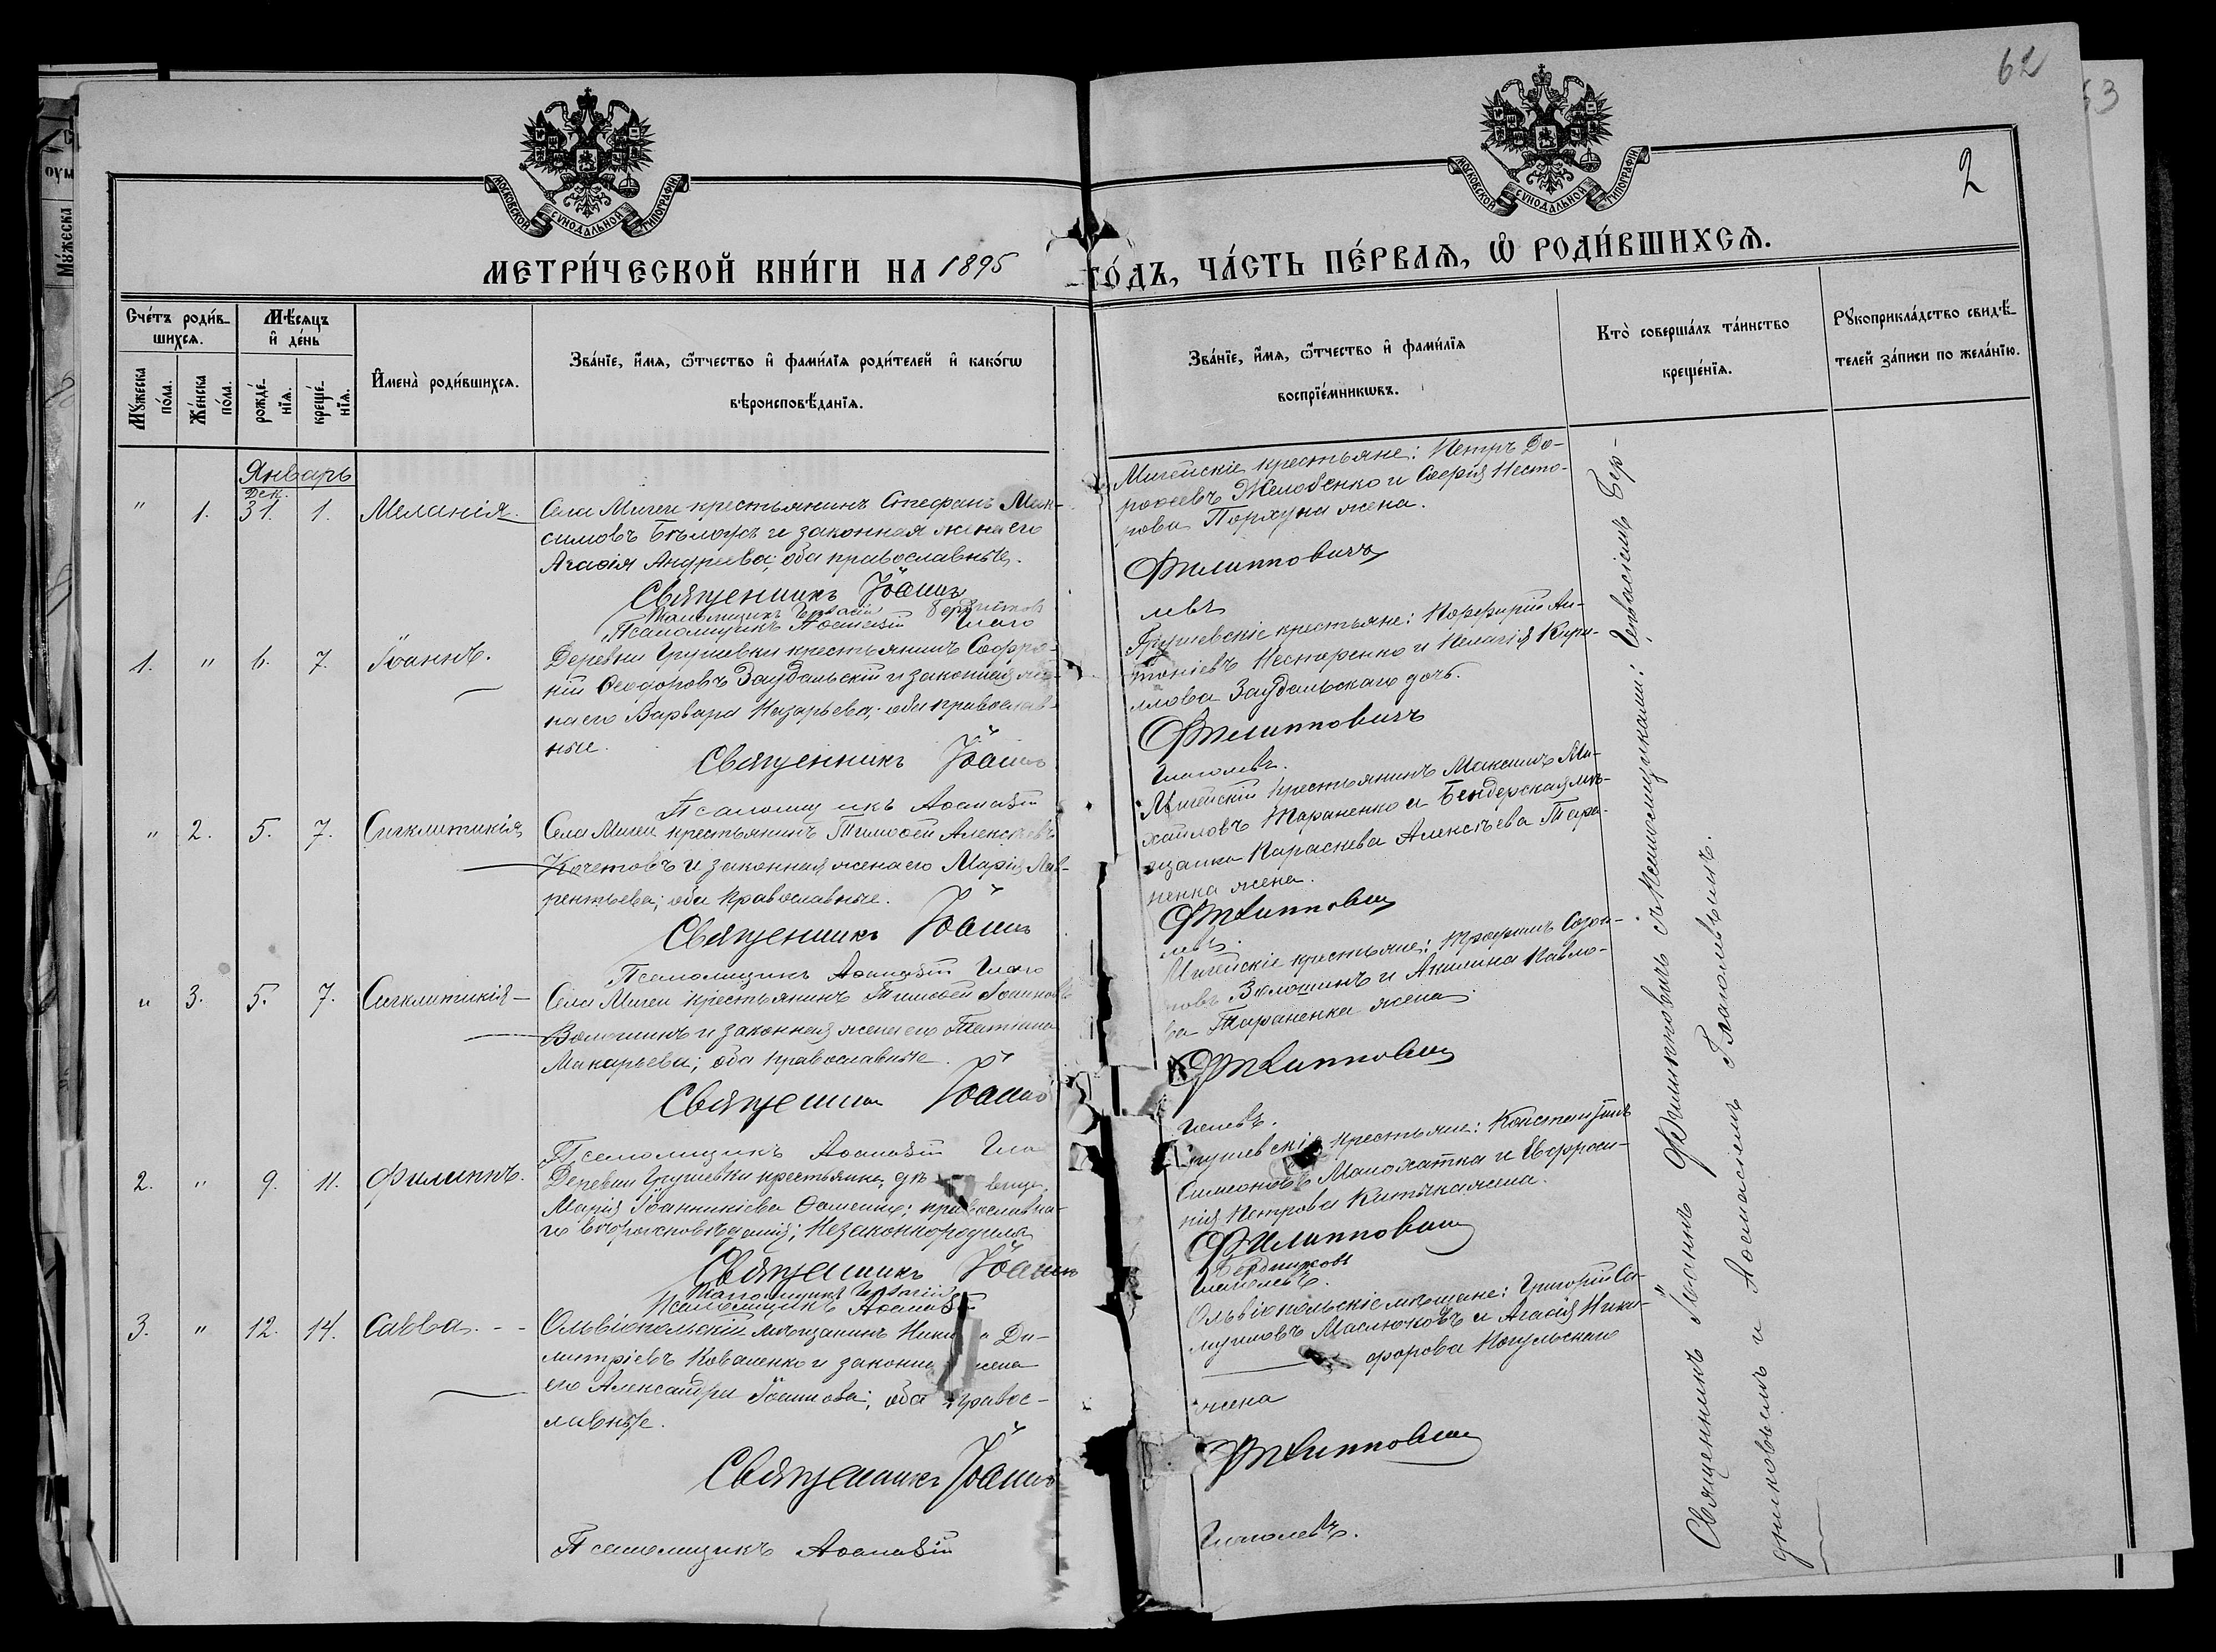 62
53
2
МОСКОВСКОЙ СѴНОДАЛЬНОЙ ТИПОГРАФІИ
МОСКОВСКОЙ СѴНОДАЛЬНОЙ ТИПОГРАФІИ
МЕТРИ́ЧЕСКОЙ КНИ́ГИ НА 1895
ГО́ДЪ, ЧА́СТЬ ПЕ́РВАѦ, Ѡ҆ РОДИ́ВШИХСѦ.
Сче́тъ роди́в-
шихсѧ.
Мꙋ́жеска по́ла.
Же́нска по́ла.
Мѣ́сѧцъ
и҆ де́нь
рожде́-
нїѧ.
креще́-
нїѧ.
И҆мена̀ роди́вшихсѧ.
Зва́нїе, и҆́мѧ, ѻ҆́тчество и҆ фами́лїѧ роди́телей и҆ како́гѡ
вѣроисповѣ́данїѧ.
Зва́нїе, и҆́мѧ, ѻ҆́тчество и҆ фами́лїѧ
воспрїе́мникѡвъ.
Кто̀ соверша́лъ та́инство
креще́нїѧ.
Рꙋкоприкла́дство свидѣ́-
телей за́писи по жела́нїю.
Январь
Дек.
" 1. 31. 1. Меланія.
Села Мигеи крестьянинъ Стефанъ Мак-
симовъ Бѣлоусъ и законная жена его
Агафія Андреева; оба православные.
Священникъ Іоаннъ
Псаломщикъ Гервасій Бердников
Псаломщикъ Аѳанасій Глаго
Мигейскіе крестьяне: Петръ До-
роѳеевъ Желобенко и Софія Несто-
рова Порхуна жена.
Филипповичъ
левъ
1. " 6. 7. Іоаннъ.
Деревни Грушевки крестьянинъ Софро-
ній Ѳеодоровъ Заудальскій и законная же-
на его Варвара Назарьева; оба православ-
ные.
Священникъ Іоаннъ
Псаломщикъ Аѳанасій
Грушевскіе крестьяне: Порфирій Ан-
тоніевъ Нестеренко и Пелагія Кири-
ллова Заудальскаго дочь.
Филипповичъ
Глаголевъ.
" 2. 5. 7. Сигклитикія
Села Мигеи крестьянинъ Тимоѳей Алексѣевъ
Кочетовъ и законная жена его Марія Лав-
рентьева; оба православные.
Священникъ Іоаннъ
Псаломщикъ Аѳанасій Глаго
Мигейскій крестьянинъ Максимъ Ми-
хайловъ Тараненко и Бендерская мѣ-
щанка Параскева Алексѣева Тара-
ненка жена.
Филипповичъ
левъ.
" 3. 5. 7. Сигклитикія
Села Мигеи крестьянинъ Тимоѳей Іоанновъ
Волошинъ и законная жена его Татіана
Макарьева; оба православные.
Священникъ Іоаннъ
Псаломщикъ Аѳанасій Глаго
Мигейскіе крестьяне: Трофимъ Созон-
товъ Волошинъ и Акилина Павло-
ва Тараненка жена.
Филипповичъ
голевъ.
2. " 9. 11. Филиппъ.
Деревни Грушевки крестьянка, дѣ вица
Марія Іоанникіева православна-
го вѣроисповѣданія; Незаконнорожденный
Священникъ Іоаннъ
Псаломщикъ Гервасій
Псаломщикъ Аѳанасій
Грушевскіе крестьяне: Константинъ
Симеоновъ Малохатка и Евфроси-
нія Петрова жена.
Филипповичъ
Бердниковъ
Глаголевъ.
3. " 12. 14. Савва.
Ольвіопольскій мѣщанинъ Ники Ди-
митріевъ Коваленко и законная жена
его Александра Іоаннова; оба правос-
лавные.
Священникъ Іоаннъ
Псаломщикъ Аѳанасій
Ольвіопольскіе мѣщане: Григорій
Маслюковъ и Агафія Ники-
форова Ногульскаго
жена
Филипповичъ
Глаголевъ.
Священникъ Іоаннъ Филипповичъ съ Псаломщиками: Гервасіемъ Бер-
дниковымъ и Аѳанасіемъ Глаголевымъ.